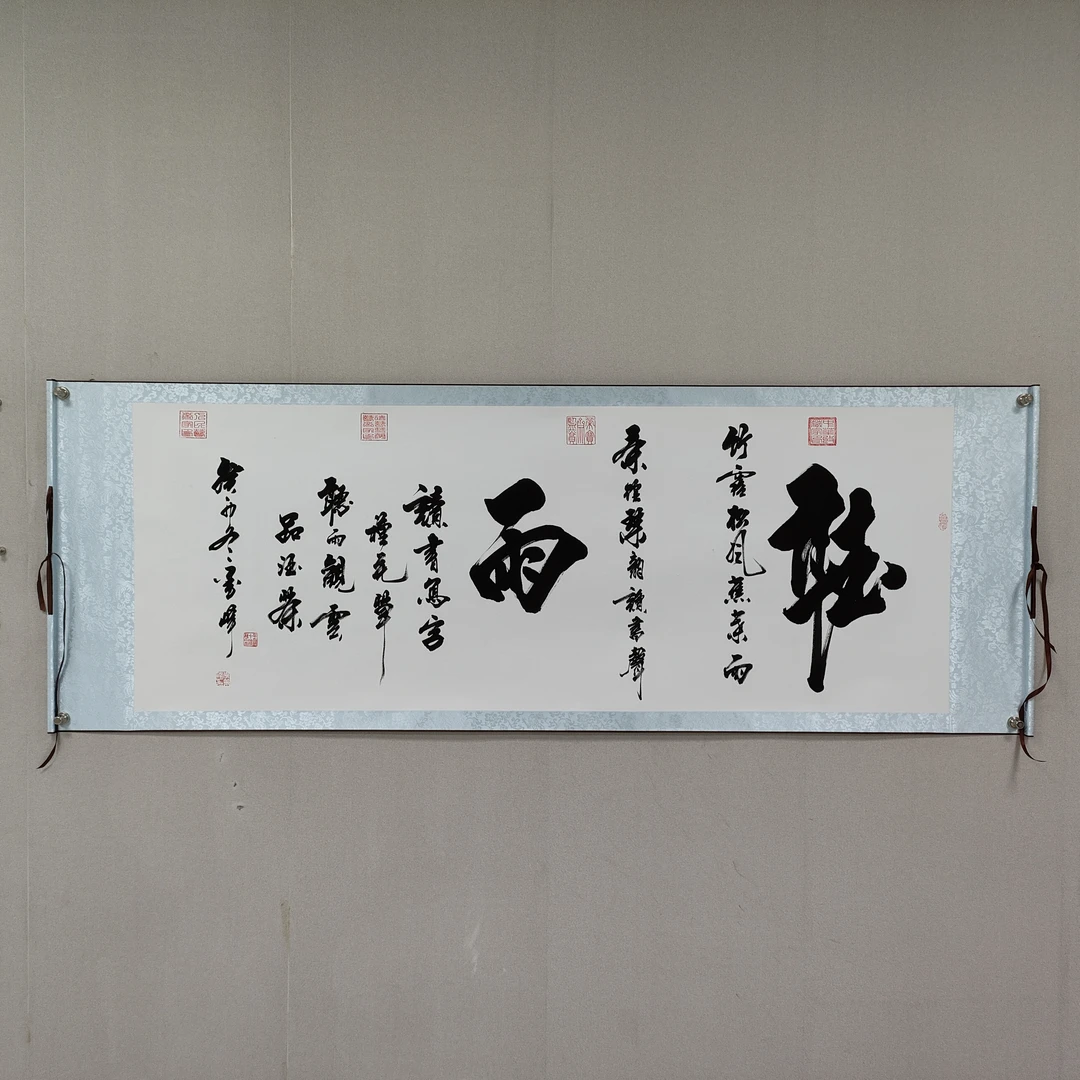 聽
竹露松風蕉葉雨
茶煙琴韻讀書聲
雨
讀書寫字
種花草
聽雨觀雲
品酒茶
癸卯冬